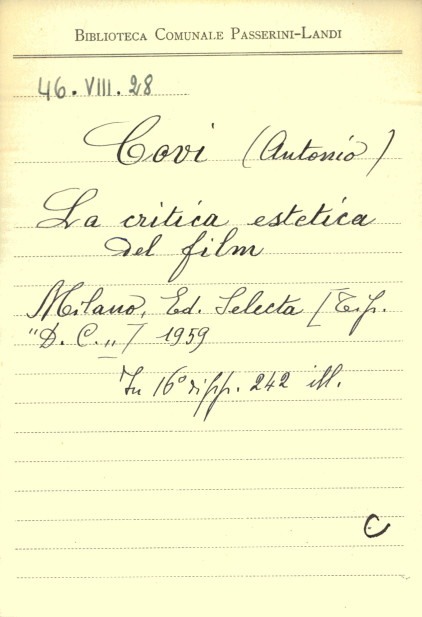 BIBLIOTECA COMUNALE PASSERINI-LANDI
46. VIII. 28
Covi (Antonio)
La critica estetica
del film
Milano, Ed. Selecta [Tip.
"D. C."] 1959
In 16° di pp. 242 ill.
C